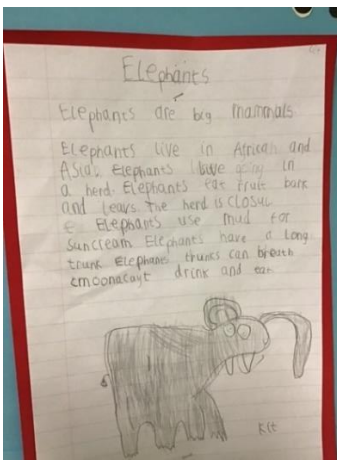 Elephants
Elephants are big mammals
Elephants live in African and
Asia. Elephants live in
a herd. Elephants eat fruit bark
and leavs The herd is closul
e Elephants use mud for
suncream Elephants have a long
trunk Elephans thunks can breath
cmoonacayt drink and ear